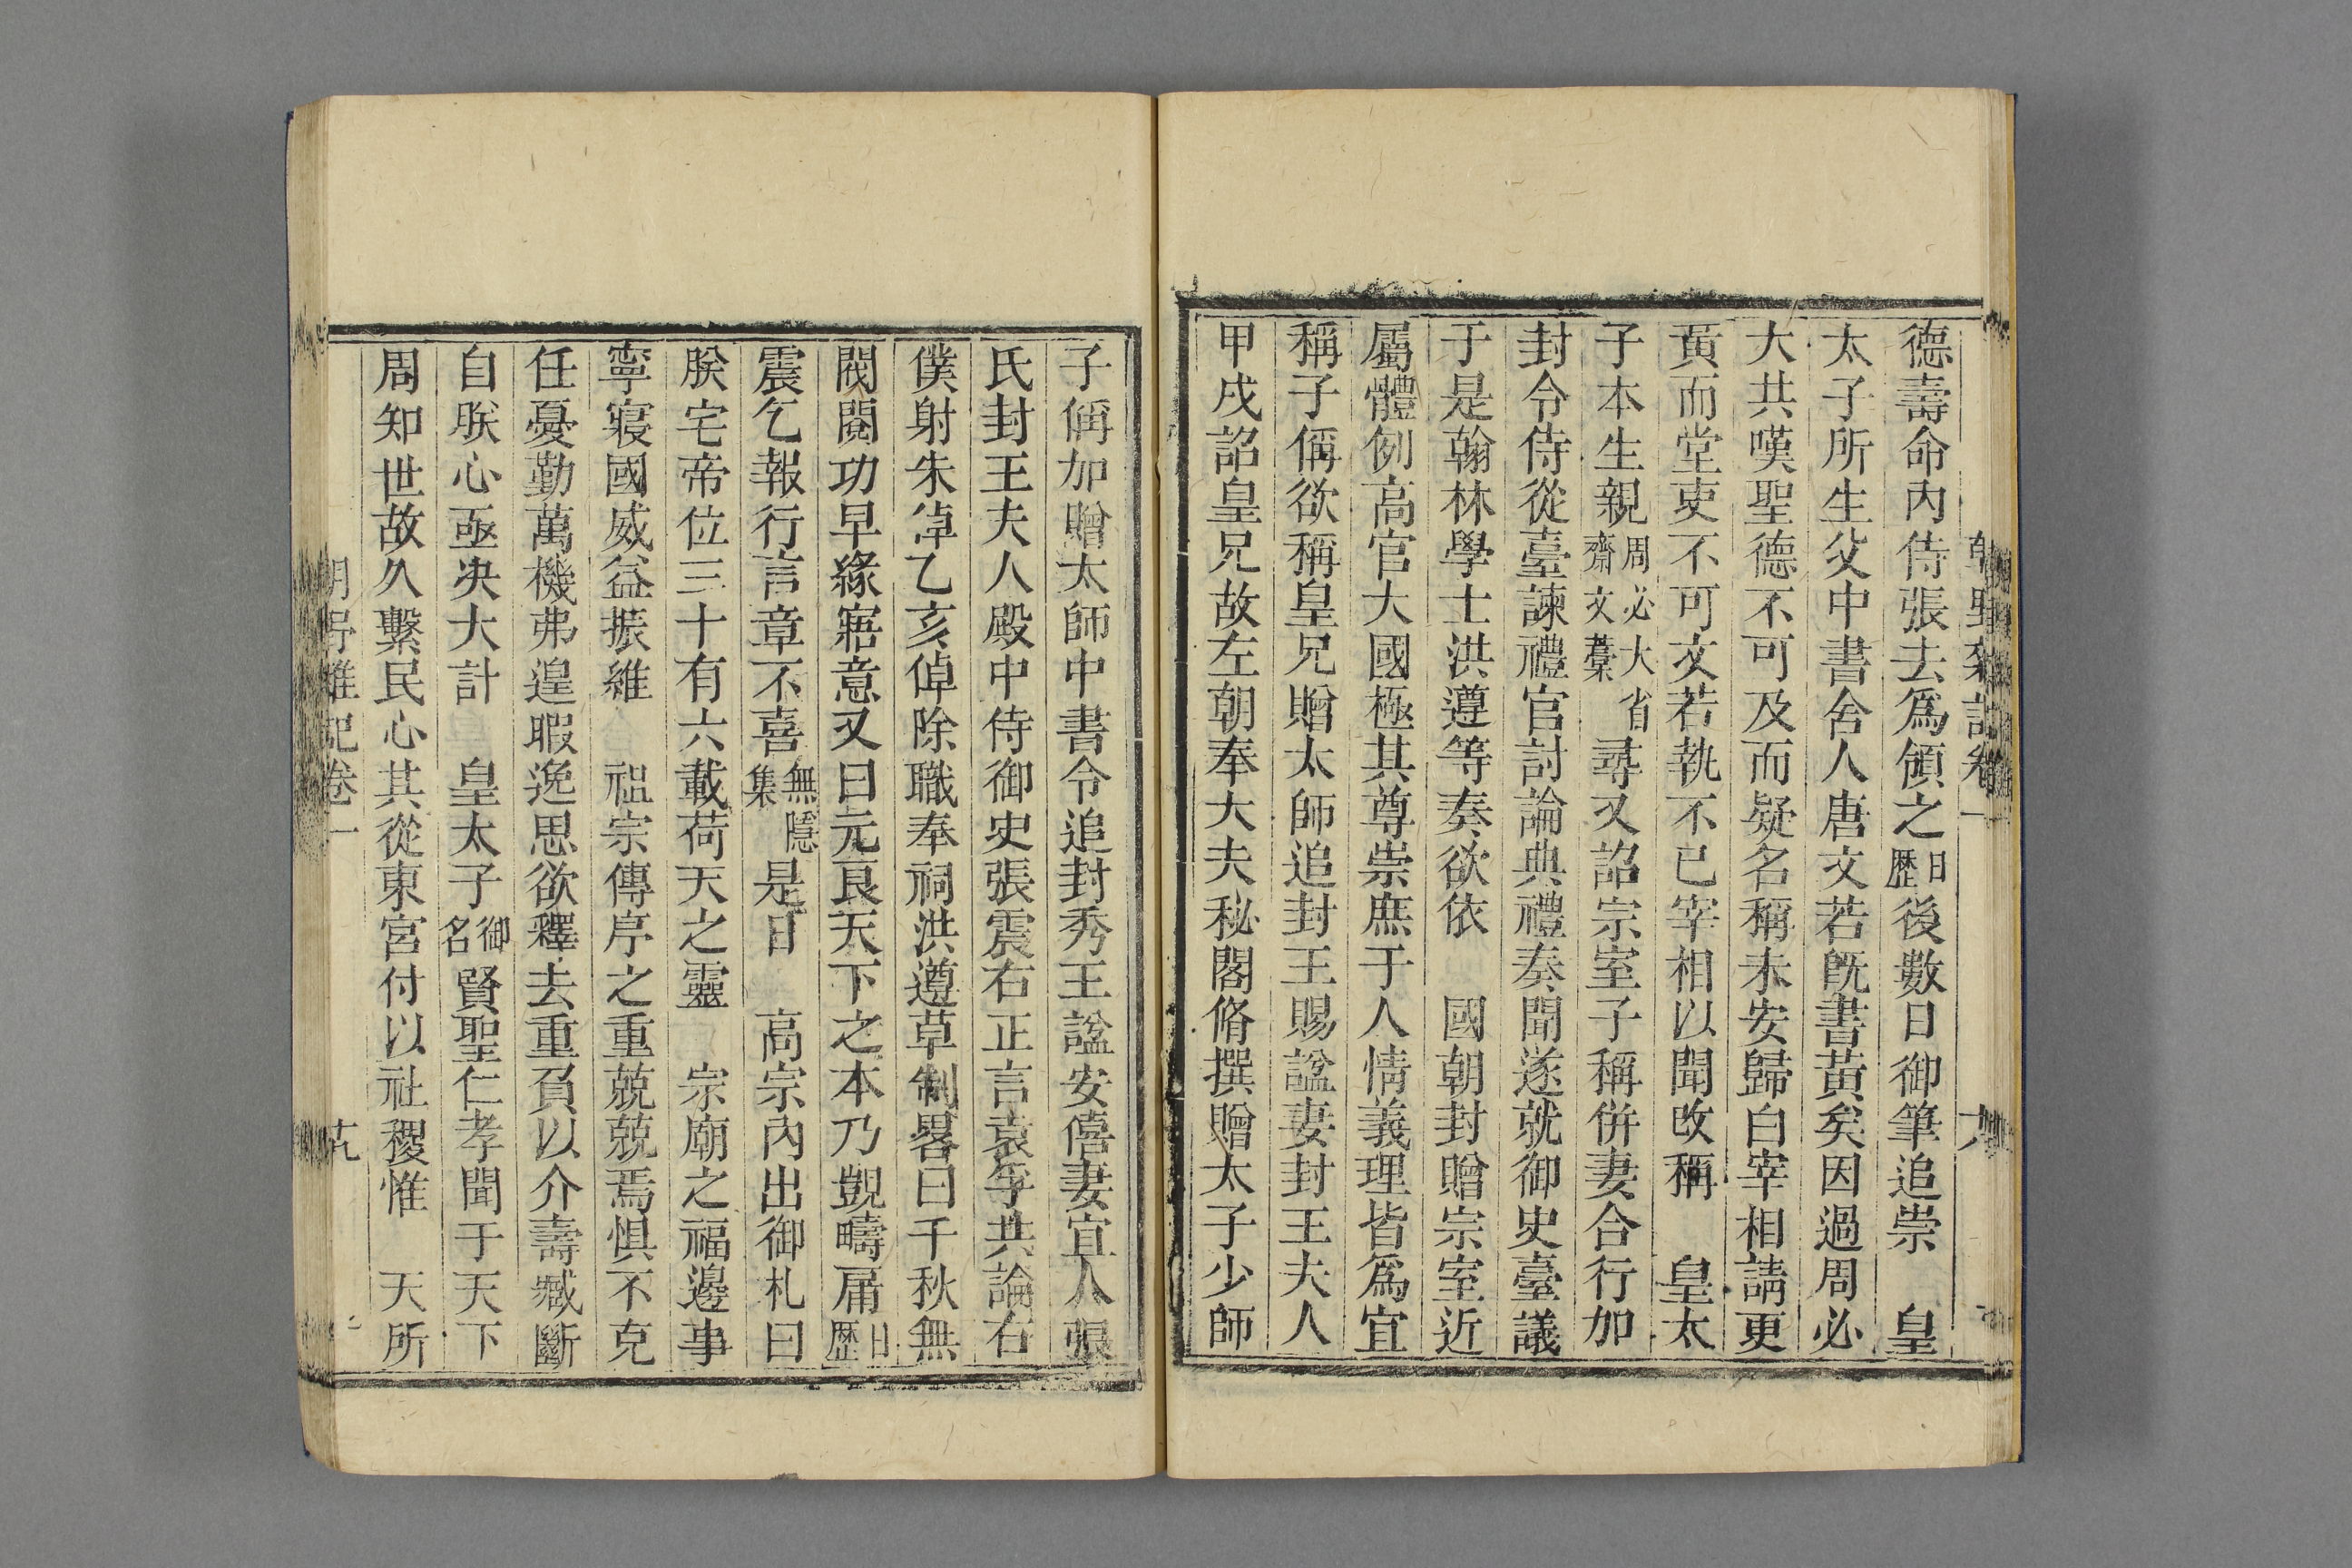 德壽命內侍張去爲領之日歷後數日御筆追崇　皇
太子所生父中書舍人唐文若旣書黃矣因過周必
大共嘆聖德不可及而疑名稱未安歸白宰相請更
黃而堂吏不可文若執不已宰相以聞改稱　皇太
子本生親周必大省齋文藁尋又詔宗室子稱併妻合行加
封令侍從臺諫禮官討論典禮奏聞遂就御史臺議
于是翰林學士洪遵等奏欲依　國朝封贈宗室近
屬體例高官大國極其尊崇庶于人情義理皆爲宜
稱子偁欲稱皇兄贈太師追封王賜諡妻封王夫人
甲戌詔皇兄故左朝奉大夫秘閣脩撰贈太子少師
子偁加贈太師中書令追封秀王諡安僖妻宜人張
氏封王夫人殿中侍御史張震右正言袁孚共論右
僕射朱倬乙亥倬除職奉祠洪遵草制畧曰千秋無
閥閱功早緣寤意又曰元良天下之本乃覬疇庸日歷
震乞報行言章不喜無隱集是日　高宗內出御札曰
朕宅帝位三十有六載荷天之靈　宗廟之福邊事
寧寢國威益振維　祖宗傳序之重兢兢焉惧不克
任憂勤萬機弗遑暇逸思欲釋去重負以介壽臧斷
自朕心亟决大計　皇太子御名賢聖仁孝聞于天下
周知世故久繫民心其從東宮付以社稷惟　天所
朝野雜記卷一